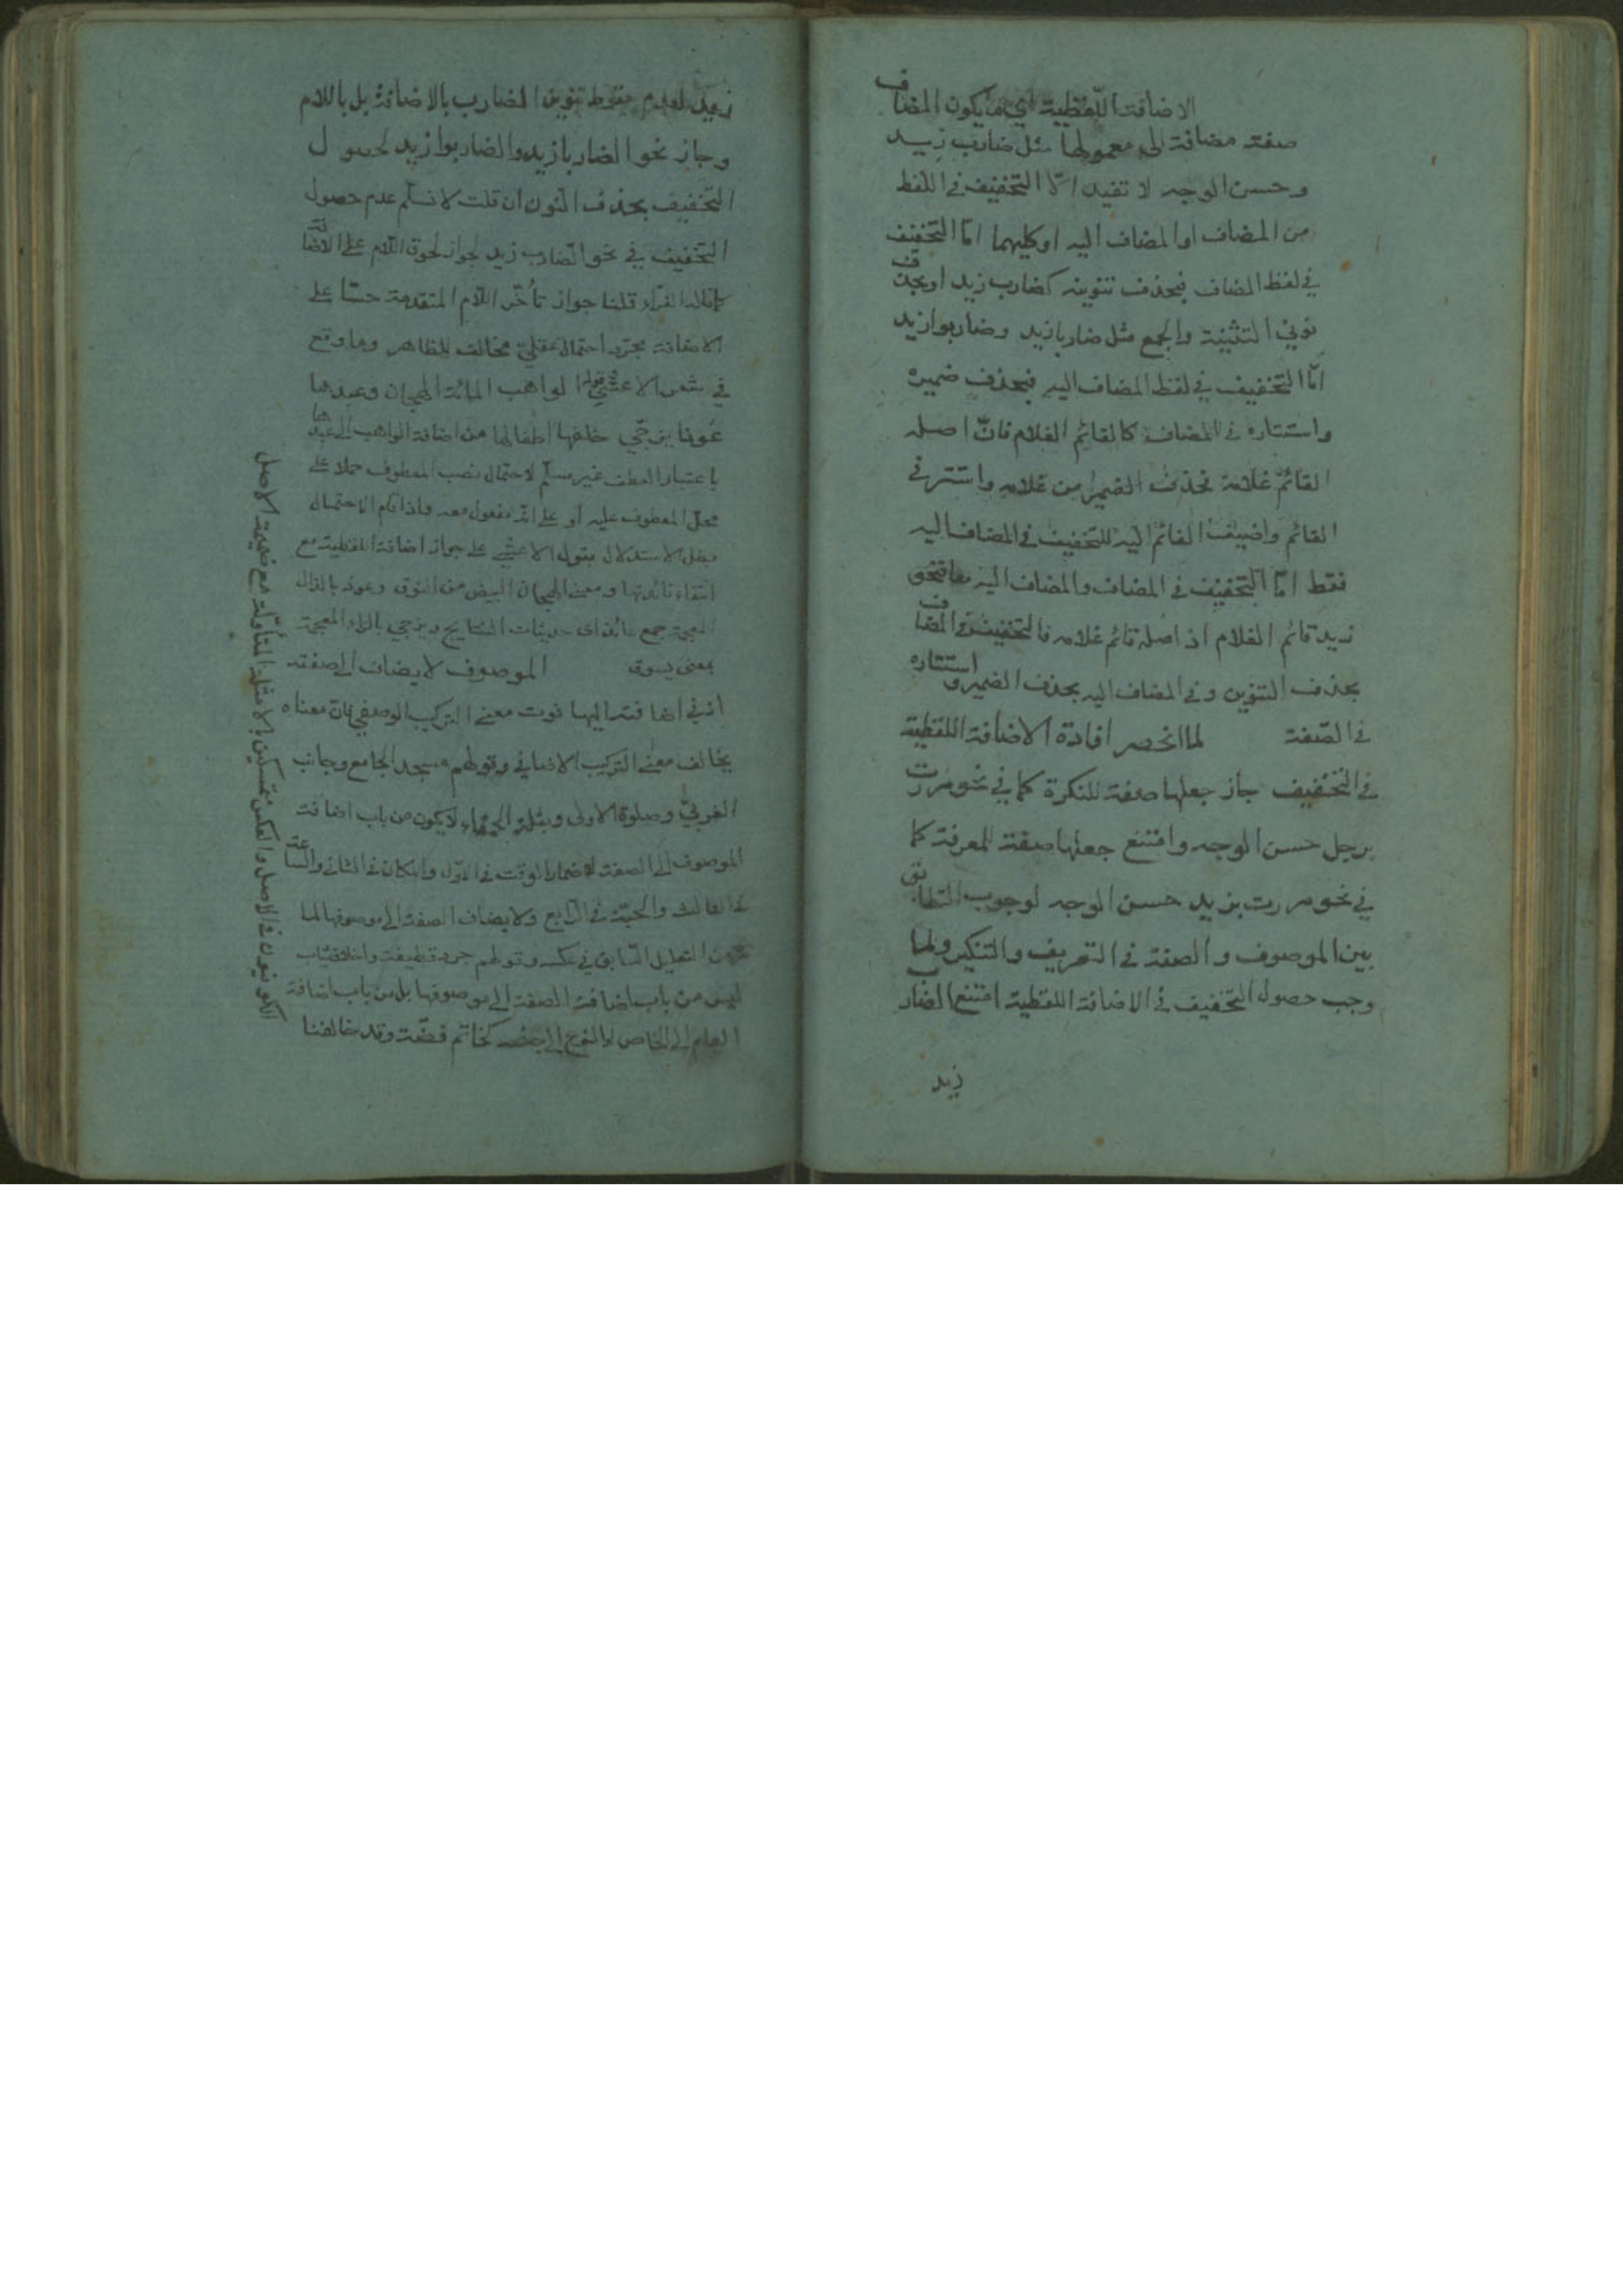 الاضافة اللفظية اي ما يكون المضاف
صفة مضافة الى معمولها مثل ضارب زيد
وحسن الوجه لا تفيد الا التخفيف في اللفظ
من المضاف او المضاف اليه او كليهما امّا التخفيف
في لفظ المضاف فبحذف تنوينه كضارب زيد او بحذف
نوني التثنية والجمع مثل ضاربا زيد وضاربوا زيد
امّا التخفيف في لفظ المضاف اليه فبحذف ضميره
واستتاره في المضاف كالقائم الغلام فانّ اصله
القائم غلامه فحذف الضمير من غلامه واستتر في
القائم واضيف القائم اليه للتخفيف في المضاف اليه
فقط امّا التخفيف في المضاف والمضاف اليه معا فنحو
زيد قائم الغلام اذ اصله قائم غلامه فالتخفيف في المضاف
بحذف التنوين وفي المضاف اليه بحذف الضمير واستتاره
في الصّفة لما انحصر افادة الاضافة اللفظية
في التخفيف جاز جعلها صفة للنكرة كما في نحو مررت
برجل حسن الوجه وامتنع جعلها صفة للمعرفة كما
في نحو مررت بزيد حسن الوجه لوجوب التطابق
بين الموصوف والصفة في التعريف والتنكير ولما
وجب حصول التخفيف في الاضافة اللفظية امتنع الضارب
زيد
زيد لعدم سقوط تنوين الضارب بالاضافة بل باللام
وجاز نحو الضاربا زيد والضاربوا زيد لحصول
التخفيف بحذف النون ان قلت لا نسلّم عدم حصول
التخفيف في نحو الضارب زيد لجواز لحوق اللام على الاضافة
كما قاله الفراء قلنا جواز تأخّر اللام المتقدمة حسّا على
الاضافة مجرّد احتمال عقليّ مخالف للظاهر وما وقع
في شعر الاعشى قوله الواهب المائة الهجان وعبدها
عوذا يزجّي خلفها اطفالها من اضافة الواهب الى عبدها
باعتبار العطف غير مسلّم لاحتمال نصب المعطوف حملا على
محلّ المعطوف عليه او على انّه مفعول معه واذا قام الاحتمال
بطل الاستدلال بقول الاعشى على جواز اضافة اللفظية مع
انتفاء فائدتها ومعنى الهجان البيض من النوق وعوذ بالذال
المعجمة جمع عائذ اى حديثات النتايج ويزجي بالزاء المعجمة
بمعنى يسوق الموصوف لا يضاف الى صفته
اذ في اضافته اليها فوت معنى التركيب الوصفي فانّ معناه
يخالف معنى التركيب الاضافي وقولهم مسجد الجامع وجانب
الغربيّ وصلوة الاولى وبقلة الحمقاء لا يكون من باب اضافة
الموصوف الى الصفة لاضمار الوقت في الاوّل والمكان في الثاني والساعة
في الثالث والحبّة في الرّابع ولا يضاف الصفة الى موصوفها لما
من التعليل السّابق في عكسه وقولهم جرد قطيفة واخلاق ثياب
ليس من باب اضافة الصفة الى موصوفها بل من باب اضافة
العام الى الخاص او النوع الى جنسه كخاتم فضّة وقد خالفنا
الكوفيون في الاصل والعكس متمسكين بالامثلة المتأوّلة مع